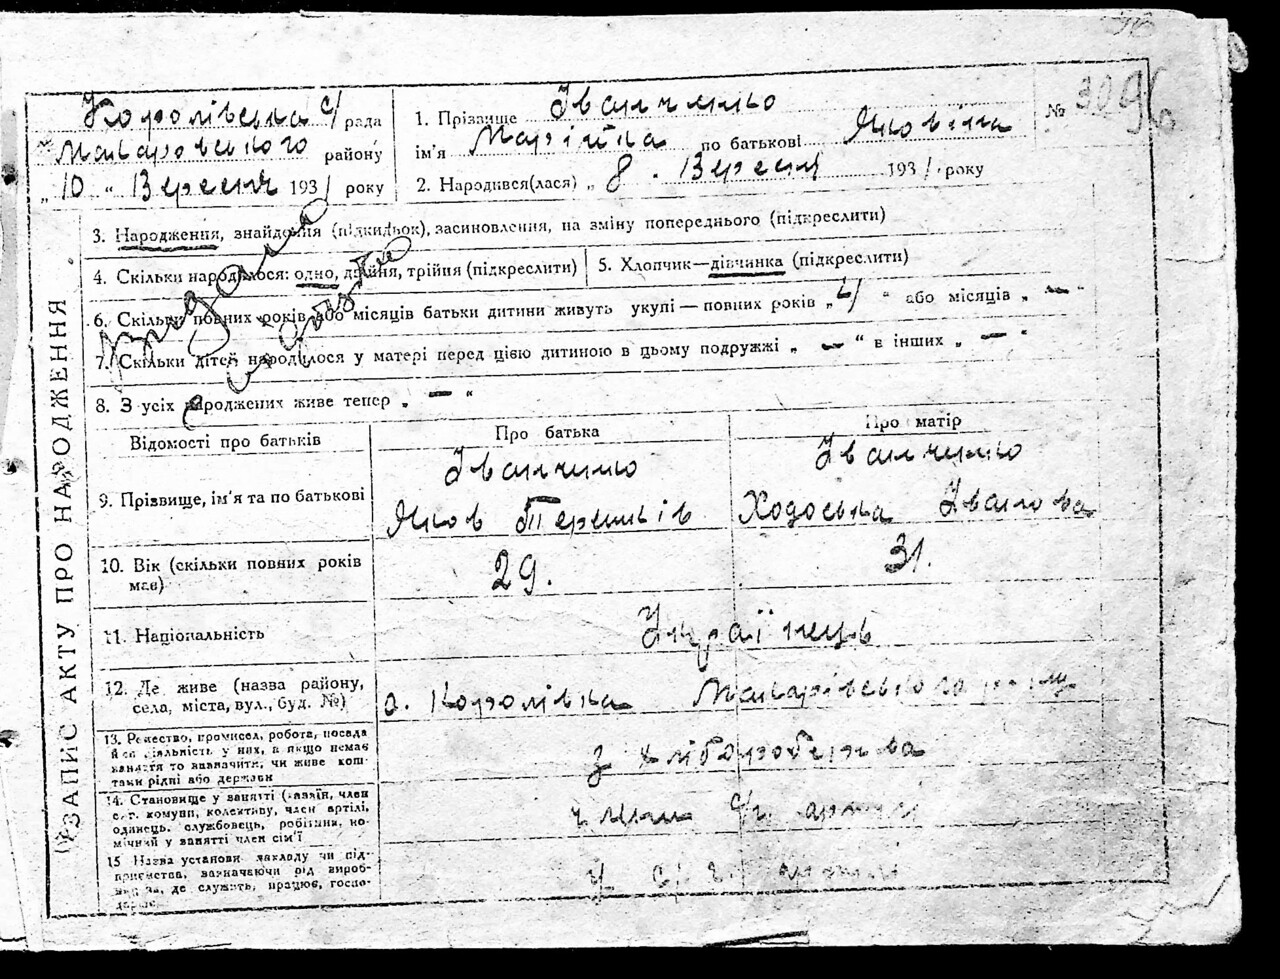 Королівська с/рада
Макаровського району
„ 10 " Вересня 1931 року
1. Прізвище Іванченко
ім'я Марійка по батькові Яковіна
2. Народився(лася) „ 8 . Вересня 1931 року
№ 3096
ЗАПИС АКТУ ПРО НАРОДЖЕННЯ
3. Народження, знайдення (підкидьок), засиновлення, на зміну попереднього (підкреслити)
4. Скільки народилося: одно, двійня, трійня (підкреслити)
5. Хлопчик—дівчинка (підкреслити)
6. Скільки повних років або місяців батьки дитини живуть укупі — повних років „ " або місяців „ — "
7. Скільки дітей народилося у матері перед цією дитиною в цьому подружжі „ — " в інших „ —
8. З усіх народжених живе тепер „ — "
Видано
Відомості про батьків
Про батька
Про матір
9. Прізвище, ім'я та по батькові
Іванченко
Яков Терешків
Іванченко
Ходоська Іванова
10. Вік (скільки повних років має)
29.
31.
11. Національність
Українець
12. Де живе (назва району, села, міста, вул., буд. №)
с. Королівка Макарівського району
13. Ремество, промисел, робота, посада й ся діяльність у них, а якщо немає заняття то визначити, чи живе коштами рідні або держави
з хліборобства
14. Становище у занятті (хазяїн, член с.-г. комуни, колективу, член артілі, одинець, службовець, робітник, помічний у занятті член сім'ї
член с/г. артілі
15 Назва установи закладу чи підприємства, визначаючи рід виробництва, де служить, працює, господарює
у с/г артілі